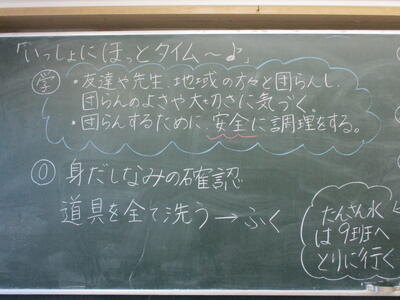 「いっしょにほっとタイム〜♪」
学 ・友達や先生、地域の方々と団らんし、
団らんのよさや大切さに気づく。
・団らんするために、安全に調理をする。
0 身だしなみの確認
道具を全て洗う→ふく
たんさん水
は9班へ
とりに行く